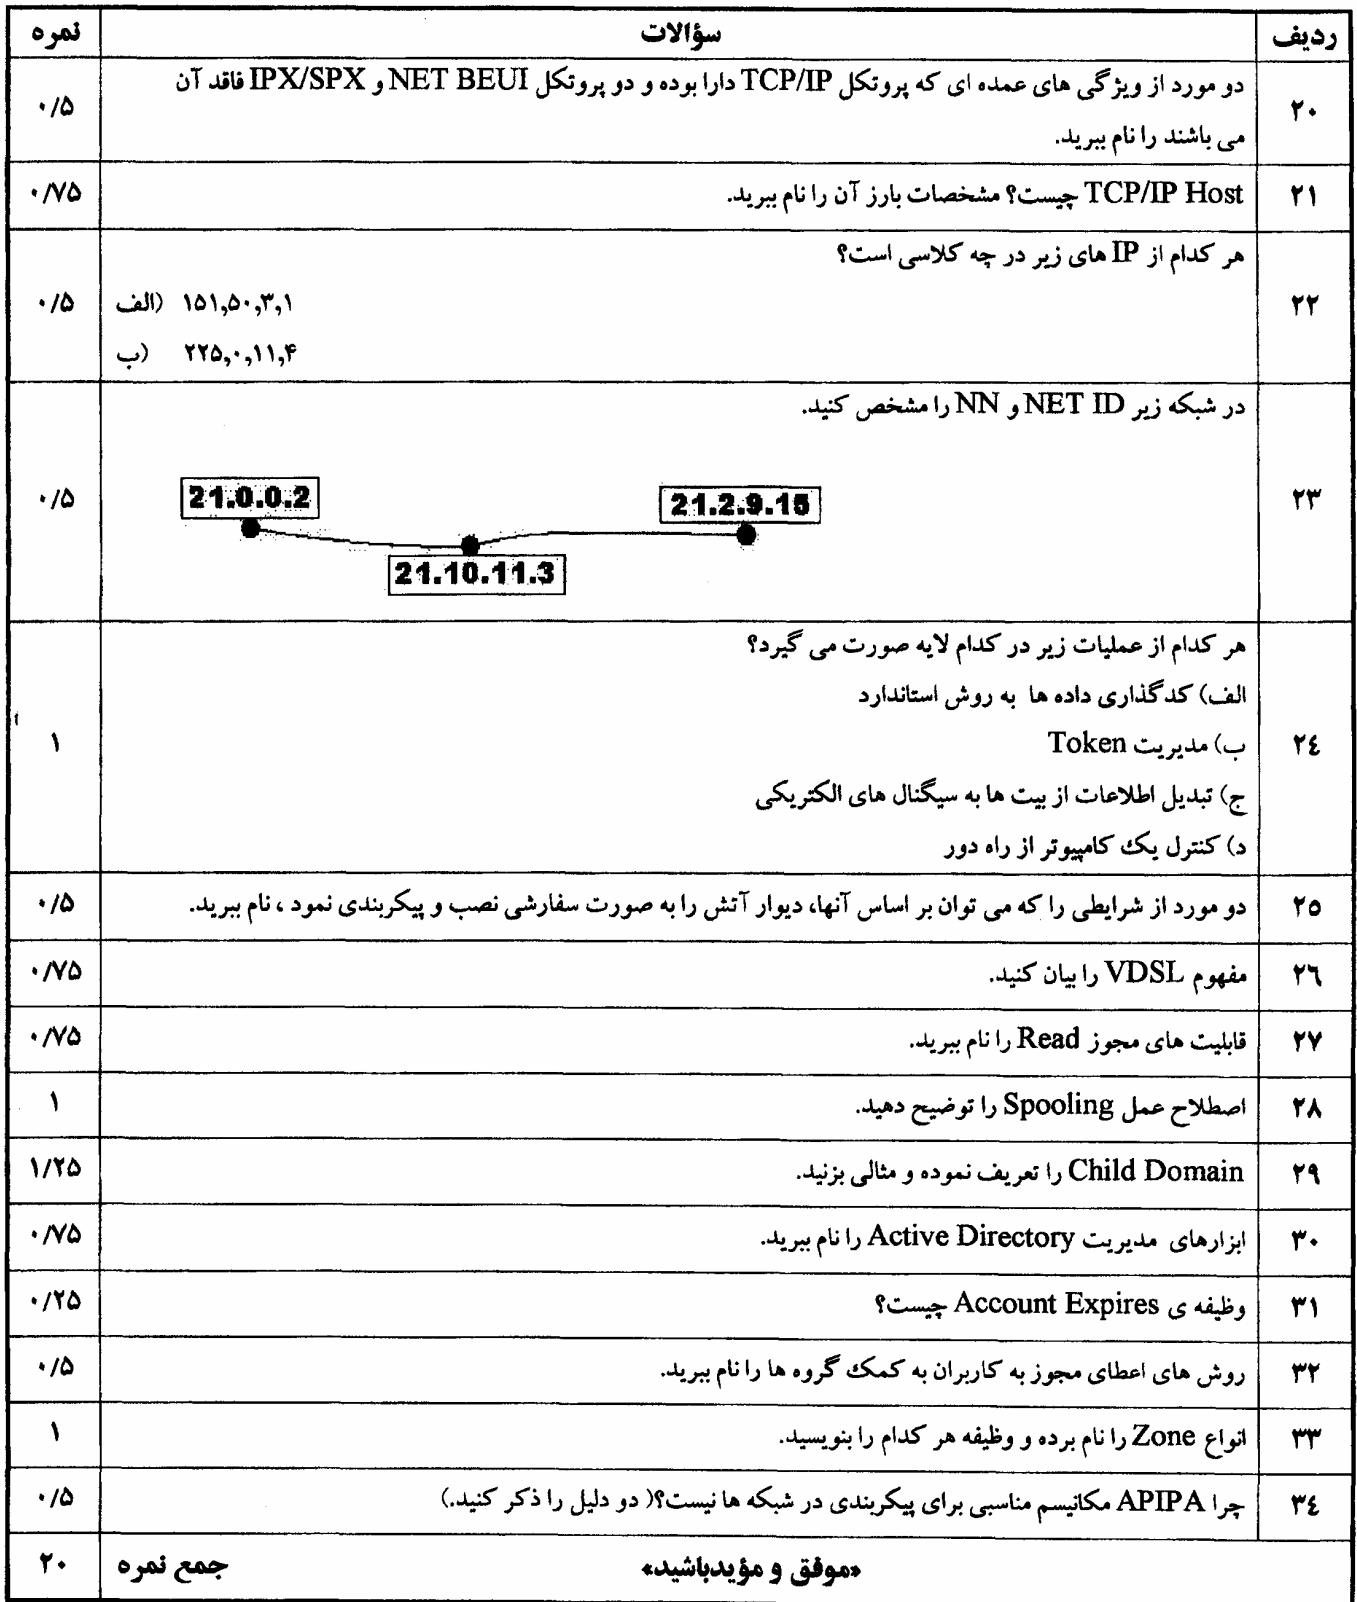 ردیف سؤالات نمره
۲۰ دو مورد از ویژگی های عمده ای که پروتکل TCP/IP دارا بوده و دو پروتکل NET BEUI و IPX/SPX فاقد آن ۰/۵
می باشند را نام ببرید.
۲۱ TCP/IP Host چیست؟ مشخصات بارز آن را نام ببرید. ۰/۷۵
هر کدام از IP های زیر در چه کلاسی است؟
۲۲ الف) ۱۵۱,۵۰,۳,۱ ۰/۵
ب) ۲۲۵,۰,۱۱,۴
در شبکه زیر NET ID و NN را مشخص کنید.
۲۳ ۰/۵
21.0.0.2
21.2.9.15
21.10.11.3
هر کدام از عملیات زیر در کدام لایه صورت می گیرد؟
الف) کدگذاری داده ها به روش استاندارد
۲٤ ب) مدیریت Token ۱
ج) تبدیل اطلاعات از بیت ها به سیگنال های الکتریکی
د) کنترل یک کامپیوتر از راه دور
۲٥ دو مورد از شرایطی را که می توان بر اساس آنها، دیوار آتش را به صورت سفارشی نصب و پیکربندی نمود ، نام ببرید. ۰/۵
۲٦ مفهوم VDSL را بیان کنید. ۰/۷۵
۲۷ قابلیت های مجوز Read را نام ببرید. ۰/۷۵
۲۸ اصطلاح عمل Spooling را توضیح دهید. ۱
۲۹ Child Domain را تعریف نموده و مثالی بزنید. ۱/۲۵
۳۰ ابزارهای مدیریت Active Directory را نام ببرید. ۰/۷۵
۳۱ وظیفه ی Account Expires چیست؟ ۰/۲۵
۳۲ روش های اعطای مجوز به کاربران به کمک گروه ها را نام ببرید. ۰/۵
۳۳ انواع Zone را نام برده و وظیفه هر کدام را بنویسید. ۱
۳٤ چرا APIPA مکانیسم مناسبی برای پیکربندی در شبکه ها نیست؟( دو دلیل را ذکر کنید.) ۰/۵
«موفق و مؤیدباشید» جمع نمره ۲۰